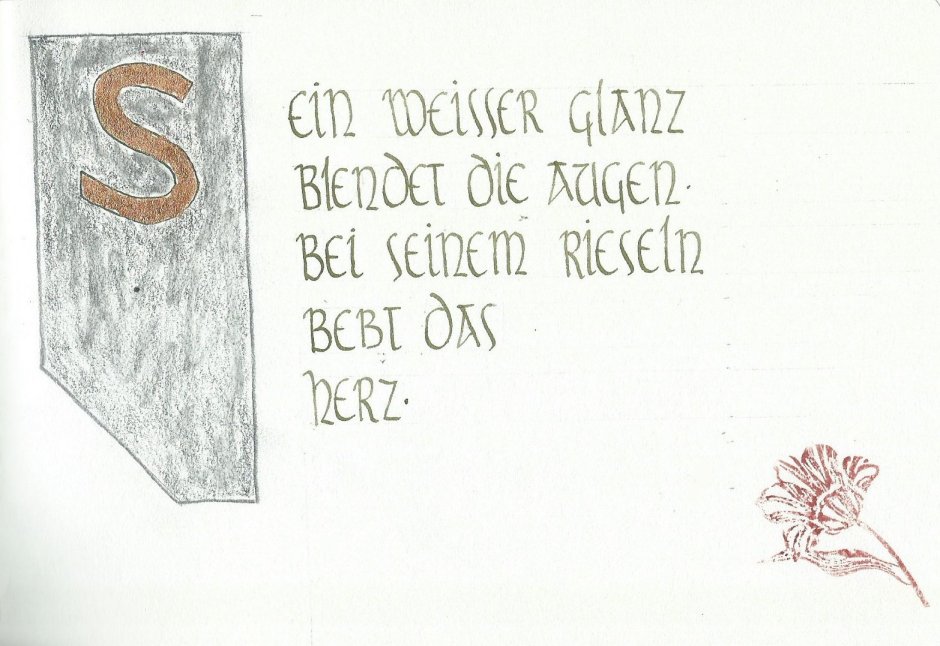 SEIN WEISSER GLANZ
BLENDET DIE AUGEN.
BEI SEINEM RIESELN
BEBT DAS
HERZ.